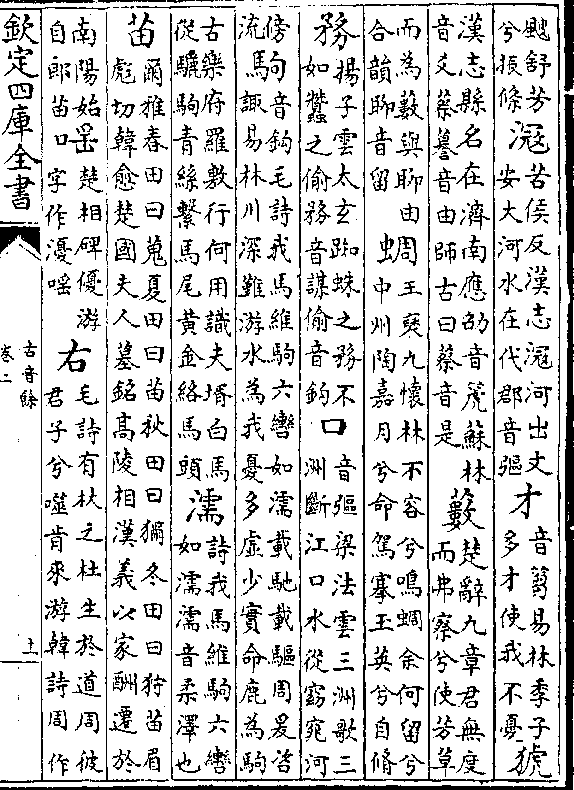 颸舒芳
兮振條
滱
苦侯反漢志滱河出丈
安大河水在代郡音彄
才
音芻易林季子
多才使我不憂
猇
漢志縣名在濟南應劭音箎蘇林
音爻蔡謩音由師古曰蔡音是
藪
楚辭九章君無度
而弗察兮使芳草
而為藪與聊由
合韻聊音留
蜩
王襃九懷林不容兮鳴蜩余何留兮
中州陶嘉月兮命駕搴玉英兮自脩
務
揚子雲太玄踟蛛之務不
如蠶之偷務音謀偷音鉤
口
音彄梁法雲三洲歌三
洲斷江口水從窈窕河
傍
流
駒
音鉤毛詩我馬維駒六轡如濡載馳載驅周爰咨
諏易林川深難游水為我憂多虛少實命鹿為駒
古樂府羅敷行何用識夫壻白馬
從驪駒青絲繫馬尾黃金絡馬頭
濡
詩我馬維駒六轡
如濡濡音柔澤也
苗
爾雅春田曰蒐夏田曰苗秋田曰獮冬田曰狩苗眉
彪切韓愈楚國夫人墓銘高陵相漢義以家酬遷於
南陽始
自郎苗
嗂
楚相碑優游
字作瀀嗂
右
毛詩有杕之杜生於道周彼
君子兮噬肯來游韓詩周作
欽定四庫全書
古音餘
卷二
十一